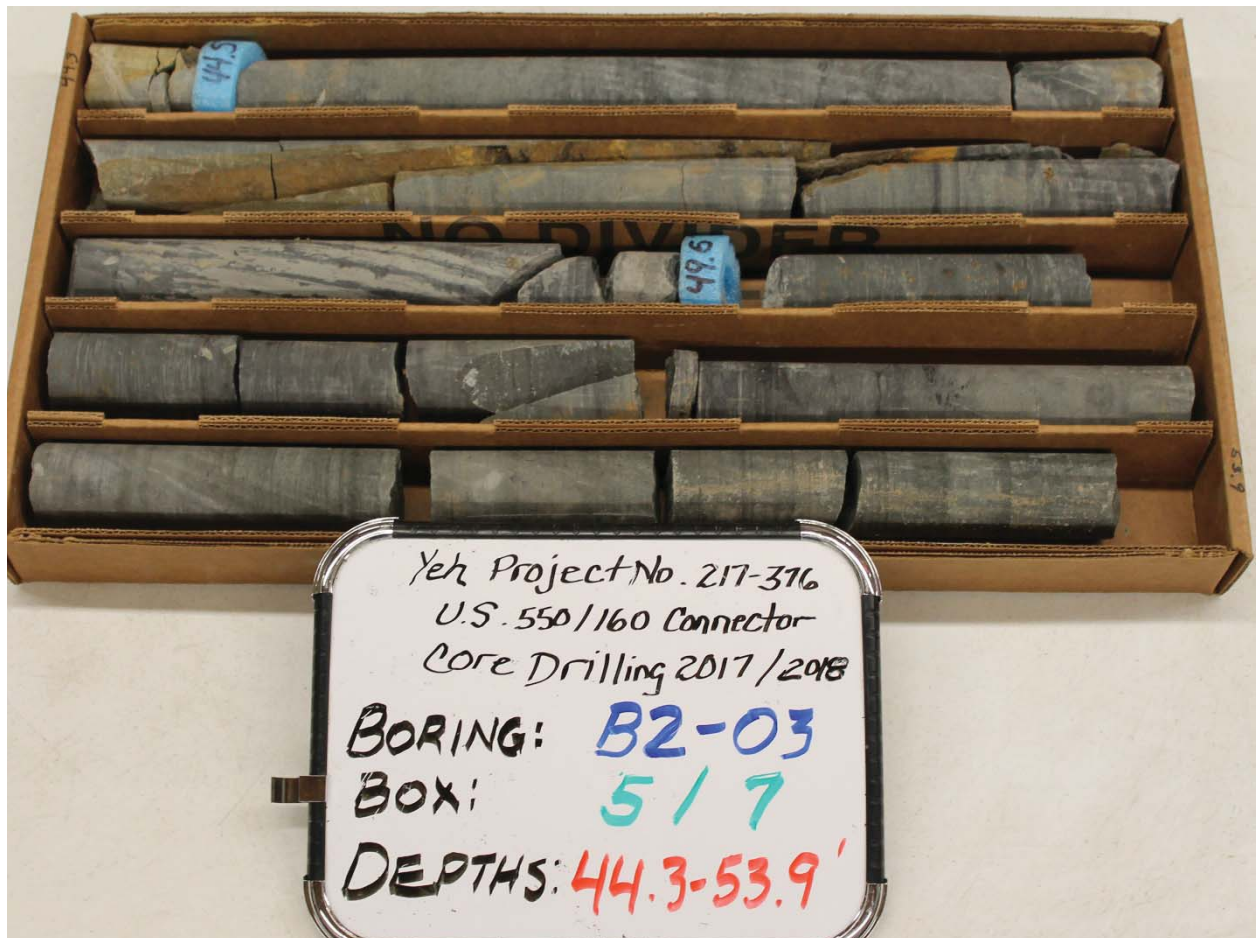 44.3
44.5
NO DIVIDER
49.5
53.9
Yeh Project No. 217-376
U.S. 550/160 Connector
Core Drilling 2017/2018
BORING: B2-03
BOX: 5/7
DEPTHS: 44.3-53.9'